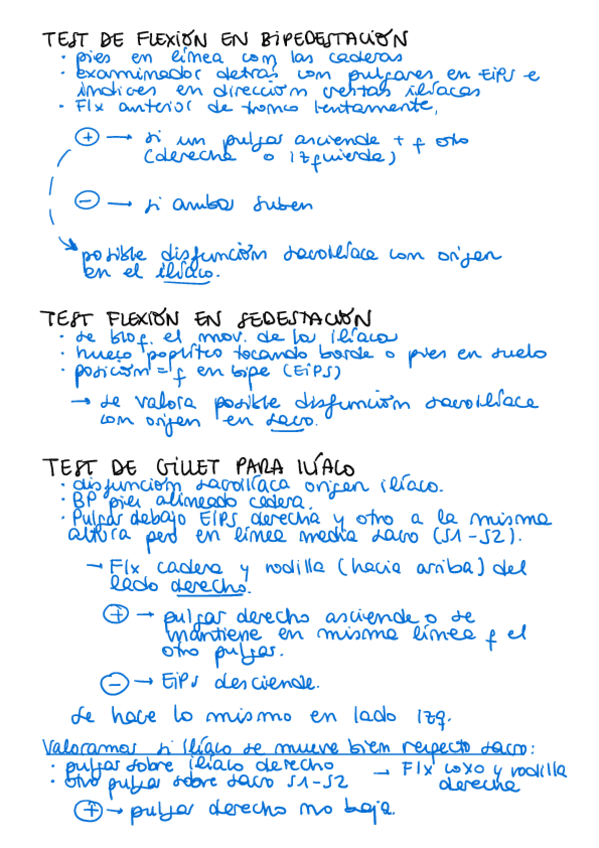 TEST DE FLEXIÓN EN BIPEDESTACIÓN
· pies en línea com las caderas
· examinador detrás com pulgares en EiPS e
índices en dirección crestas ilíacas
· Flx anterior de tronco lentamente,
+ → si un pulgar asciende + q otro
(derecha o izquierda)
- → si ambos suben
posible disfunción sacroilíaca com origen
en el ilíaco.
TEST FLEXIÓN EN SEDESTACIÓN
· se bloq. el mov. de los ilíacos
· hueco poplíteo tocando borde o pies en suelo
· posición = q en bipe (EiPS)
→ se valora posible disfunción sacroilíaca
com origen en sacro.
TEST DE GILLET PARA ILÍACO
· disfunción sacroilíaca origen ilíaco.
· BP pies alineado cadera.
· Pulgar debajo EIPS derecha y otro a la misma
altura pero en línea media sacro (S1-S2).
→ Flx cadera y rodilla (hacia arriba) del
lado derecho.
+ → pulgar derecho asciende o se
mantiene en misma línea q el
otro pulgar.
- → EiPS desciende.
Se hace lo mismo en lado izq.
Valoramos si ilíaco se mueve bien respecto sacro:
· pulgar sobre ilíaco derecho
· otro pulgar sobre sacro S1-S2
→ Flx coxo y rodilla
derecha
+ → pulgar derecho no baja.